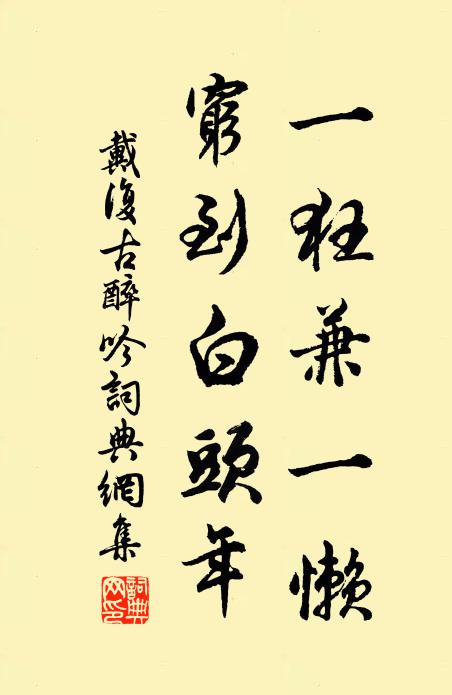 一狂兼一懶
窮到白頭年
戴復古醉吟詞典網集
詞典網印